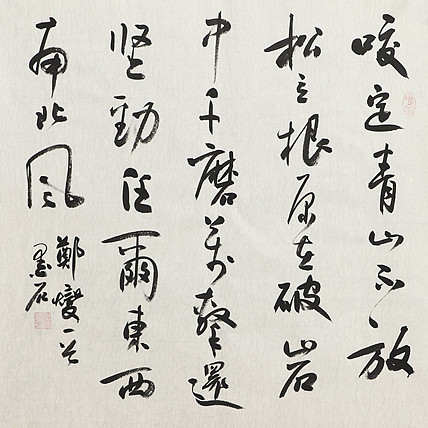 咬定青山不放
松立根原在破岩
中千磨萬擊還
坚勁任爾東西
南北风
鄭燮一首
墨石